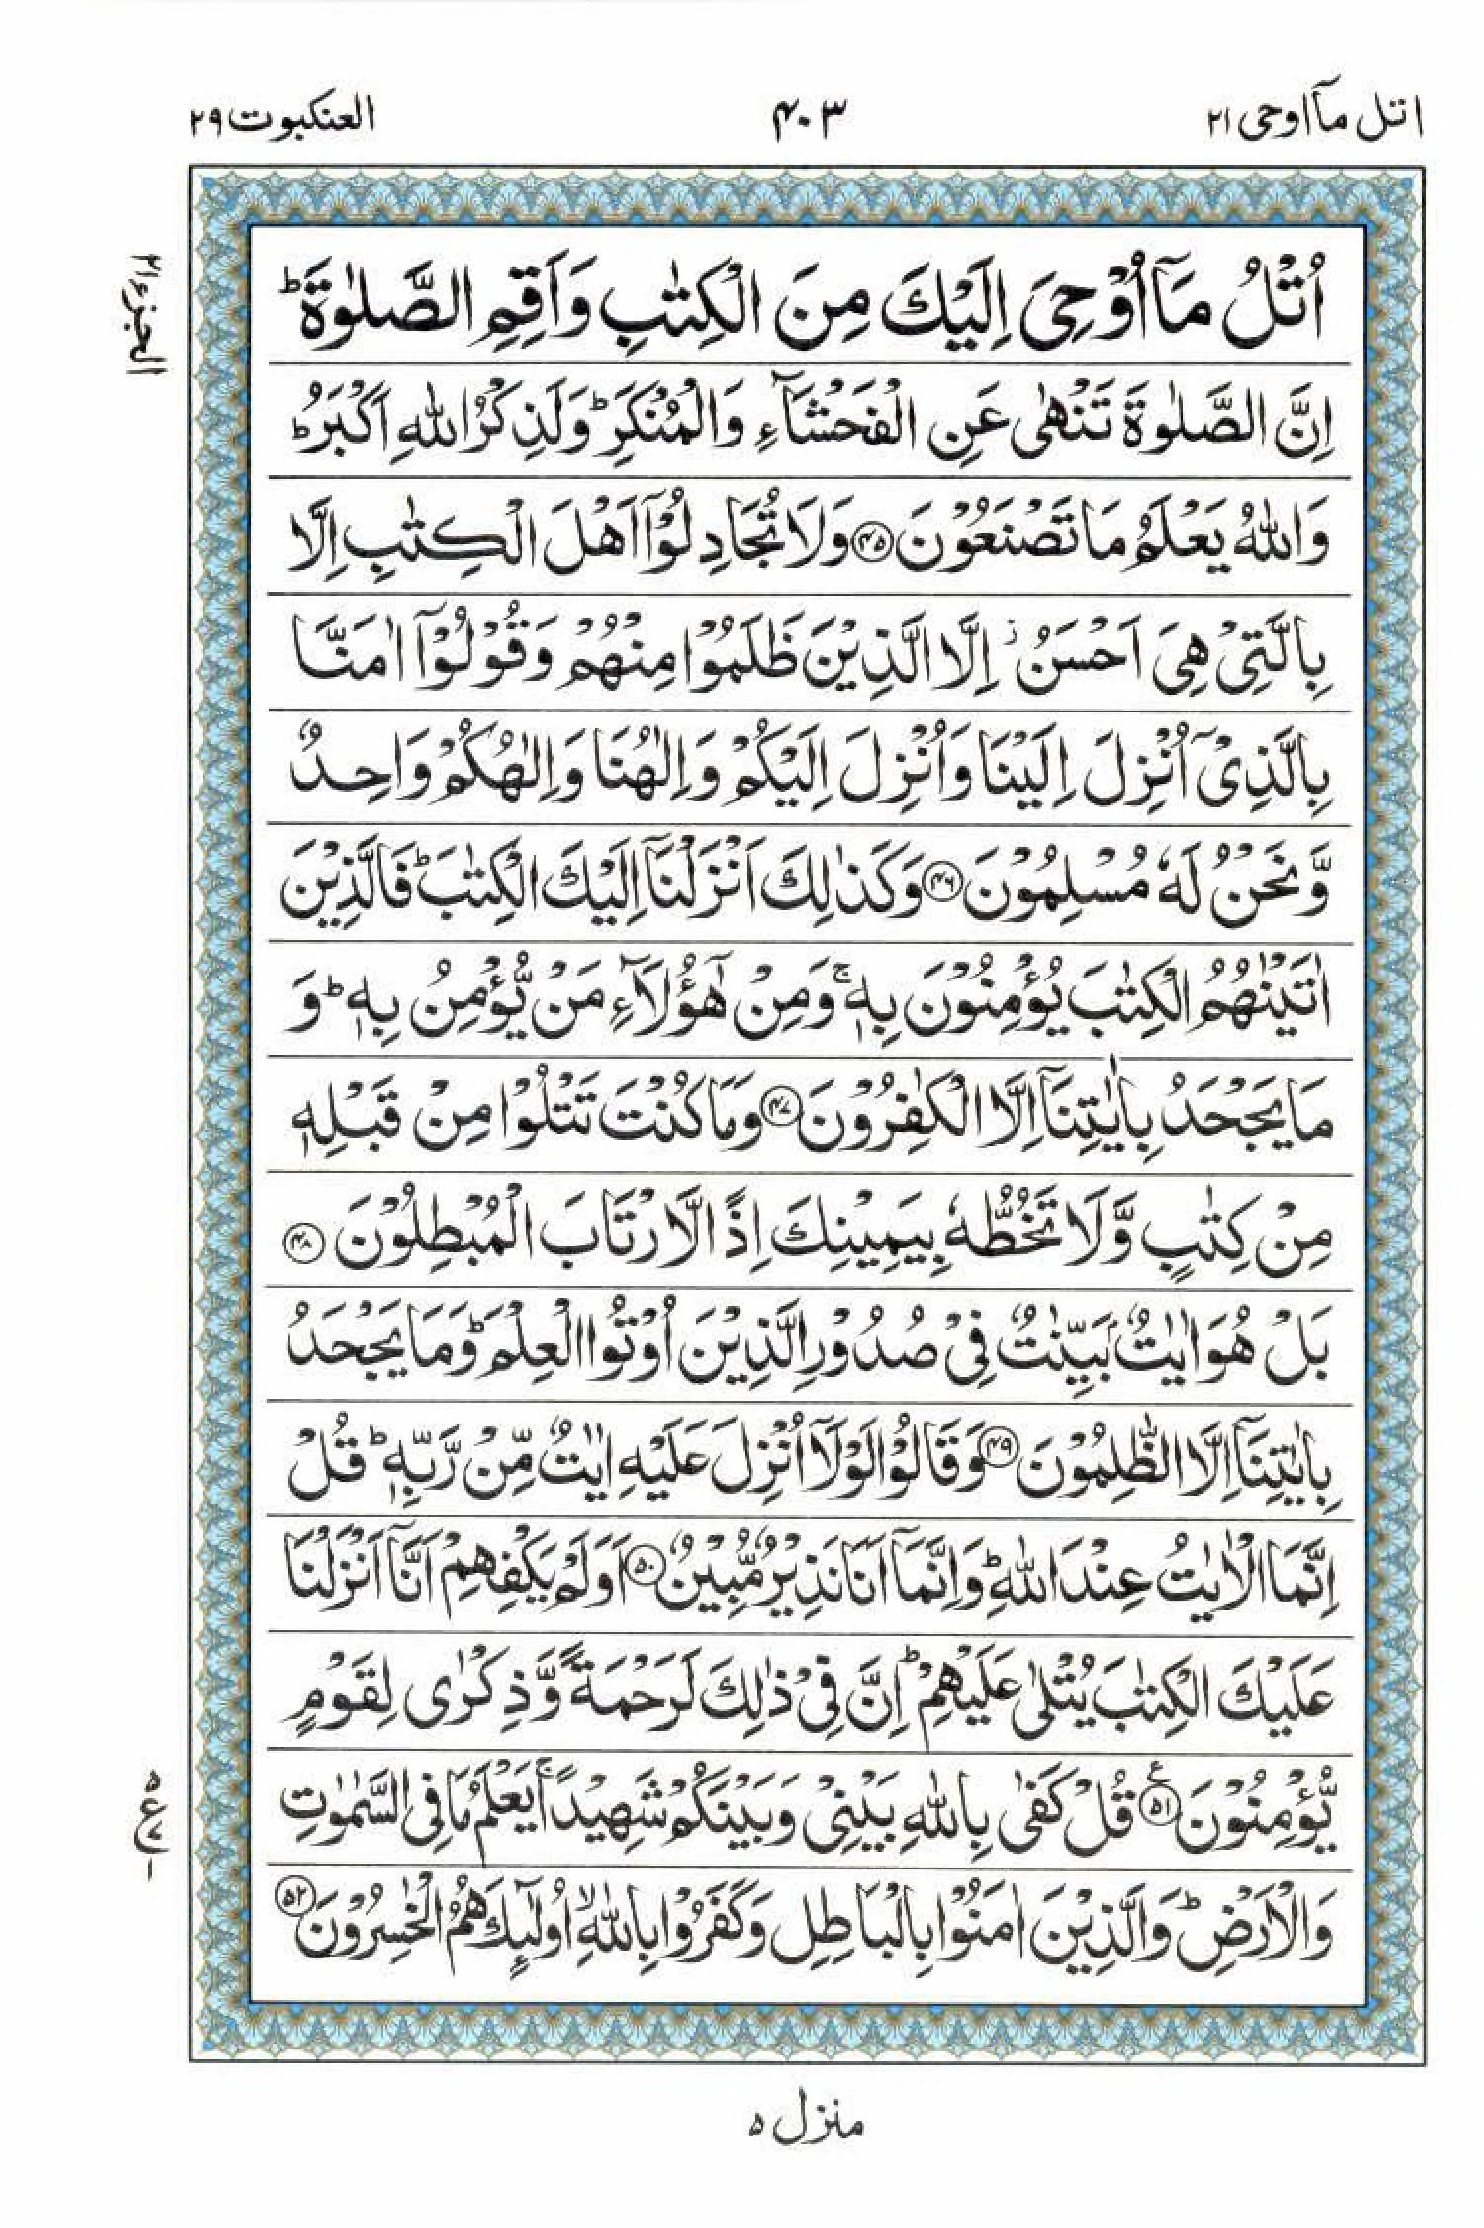 اتل مآاوحی ۲۱
۴۰۳
العنکبوت ۲۹
الجزء ۲۱
اُتْلُ مَاۤ اُوْحِیَ اِلَیْكَ مِنَ الْكِتٰبِ وَاَقِمِ الصَّلٰوةَ ؕ
اِنَّ الصَّلٰوةَ تَنْهٰی عَنِ الْفَحْشَآءِ وَالْمُنْكَرِ ؕ وَلَذِكْرُ اللّٰهِ اَكْبَرُ ؕ
وَاللّٰهُ یَعْلَمُ مَا تَصْنَعُوْنَ ﴿۴۵﴾ وَلَا تُجَادِلُوْۤا اَهْلَ الْكِتٰبِ اِلَّا
بِالَّتِیْ هِیَ اَحْسَنُ ۖ ز اِلَّا الَّذِیْنَ ظَلَمُوْا مِنْهُمْ وَقُوْلُوْۤا اٰمَنَّا
بِالَّذِیْۤ اُنْزِلَ اِلَیْنَا وَاُنْزِلَ اِلَیْكُمْ وَاِلٰهُنَا وَاِلٰهُكُمْ وَاحِدٌ
وَّنَحْنُ لَهٗ مُسْلِمُوْنَ ﴿۴۶﴾ وَكَذٰلِكَ اَنْزَلْنَاۤ اِلَیْكَ الْكِتٰبَ ؕ فَالَّذِیْنَ
اٰتَیْنٰهُمُ الْكِتٰبَ یُؤْمِنُوْنَ بِهٖ ۚ وَمِنْ هٰۤؤُلَآءِ مَنْ یُّؤْمِنُ بِهٖ ؕ وَ
مَا یَجْحَدُ بِاٰیٰتِنَاۤ اِلَّا الْكٰفِرُوْنَ ﴿۴۷﴾ وَمَا كُنْتَ تَتْلُوْا مِنْ قَبْلِهٖ
مِنْ كِتٰبٍ وَّلَا تَخُطُّهٗ بِیَمِیْنِكَ اِذًا لَّارْتَابَ الْمُبْطِلُوْنَ ﴿۴۸﴾
بَلْ هُوَ اٰیٰتٌۢ بَیِّنٰتٌ فِیْ صُدُوْرِ الَّذِیْنَ اُوْتُوا الْعِلْمَ ؕ وَمَا یَجْحَدُ
بِاٰیٰتِنَاۤ اِلَّا الظّٰلِمُوْنَ ﴿۴۹﴾ وَقَالُوْا لَوْلَاۤ اُنْزِلَ عَلَیْهِ اٰیٰتٌ مِّنْ رَّبِّهٖ ؕ قُلْ
اِنَّمَا الْاٰیٰتُ عِنْدَ اللّٰهِ ؕ وَاِنَّمَاۤ اَنَا نَذِیْرٌ مُّبِیْنٌ ﴿۵۰﴾ اَوَلَمْ یَكْفِهِمْ اَنَّاۤ اَنْزَلْنَا
عَلَیْكَ الْكِتٰبَ یُتْلٰی عَلَیْهِمْ ؕ اِنَّ فِیْ ذٰلِكَ لَرَحْمَةً وَّذِكْرٰی لِقَوْمٍ
یُّؤْمِنُوْنَ ﴿۵۱﴾ ع قُلْ كَفٰی بِاللّٰهِ بَیْنِیْ وَبَیْنَكُمْ شَهِیْدًا ۚ یَعْلَمُ مَا فِی السَّمٰوٰتِ
وَالْاَرْضِ ؕ وَالَّذِیْنَ اٰمَنُوْا بِالْبَاطِلِ وَكَفَرُوْا بِاللّٰهِ ۙ اُولٰٓئِكَ هُمُ الْخٰسِرُوْنَ ﴿۵۲﴾
منزل ۵